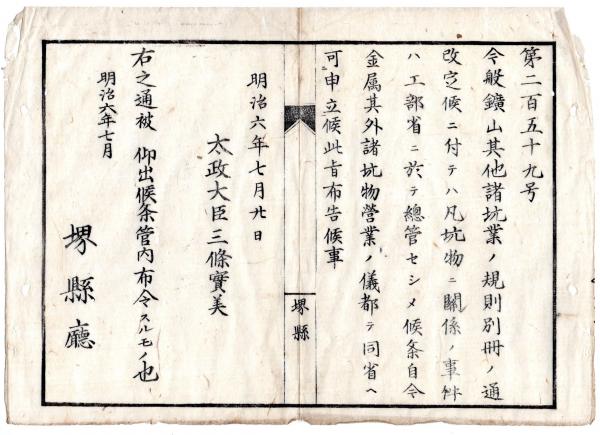 第二百五十九号
今般鑛山其他諸坑業ノ規則別冊ノ通
改定候ニ付テハ凡坑物ニ關係ノ事件
ハ工部省ニ於テ總管セシメ候条自今
金属其外諸坑物營業ノ儀都テ同省ヘ
可申立候此旨布告候事
明治六年七月廿日
太政大臣三條實美
堺縣
右之通被 仰出候条管内布令スルモノ也
明治六年七月
堺縣廳